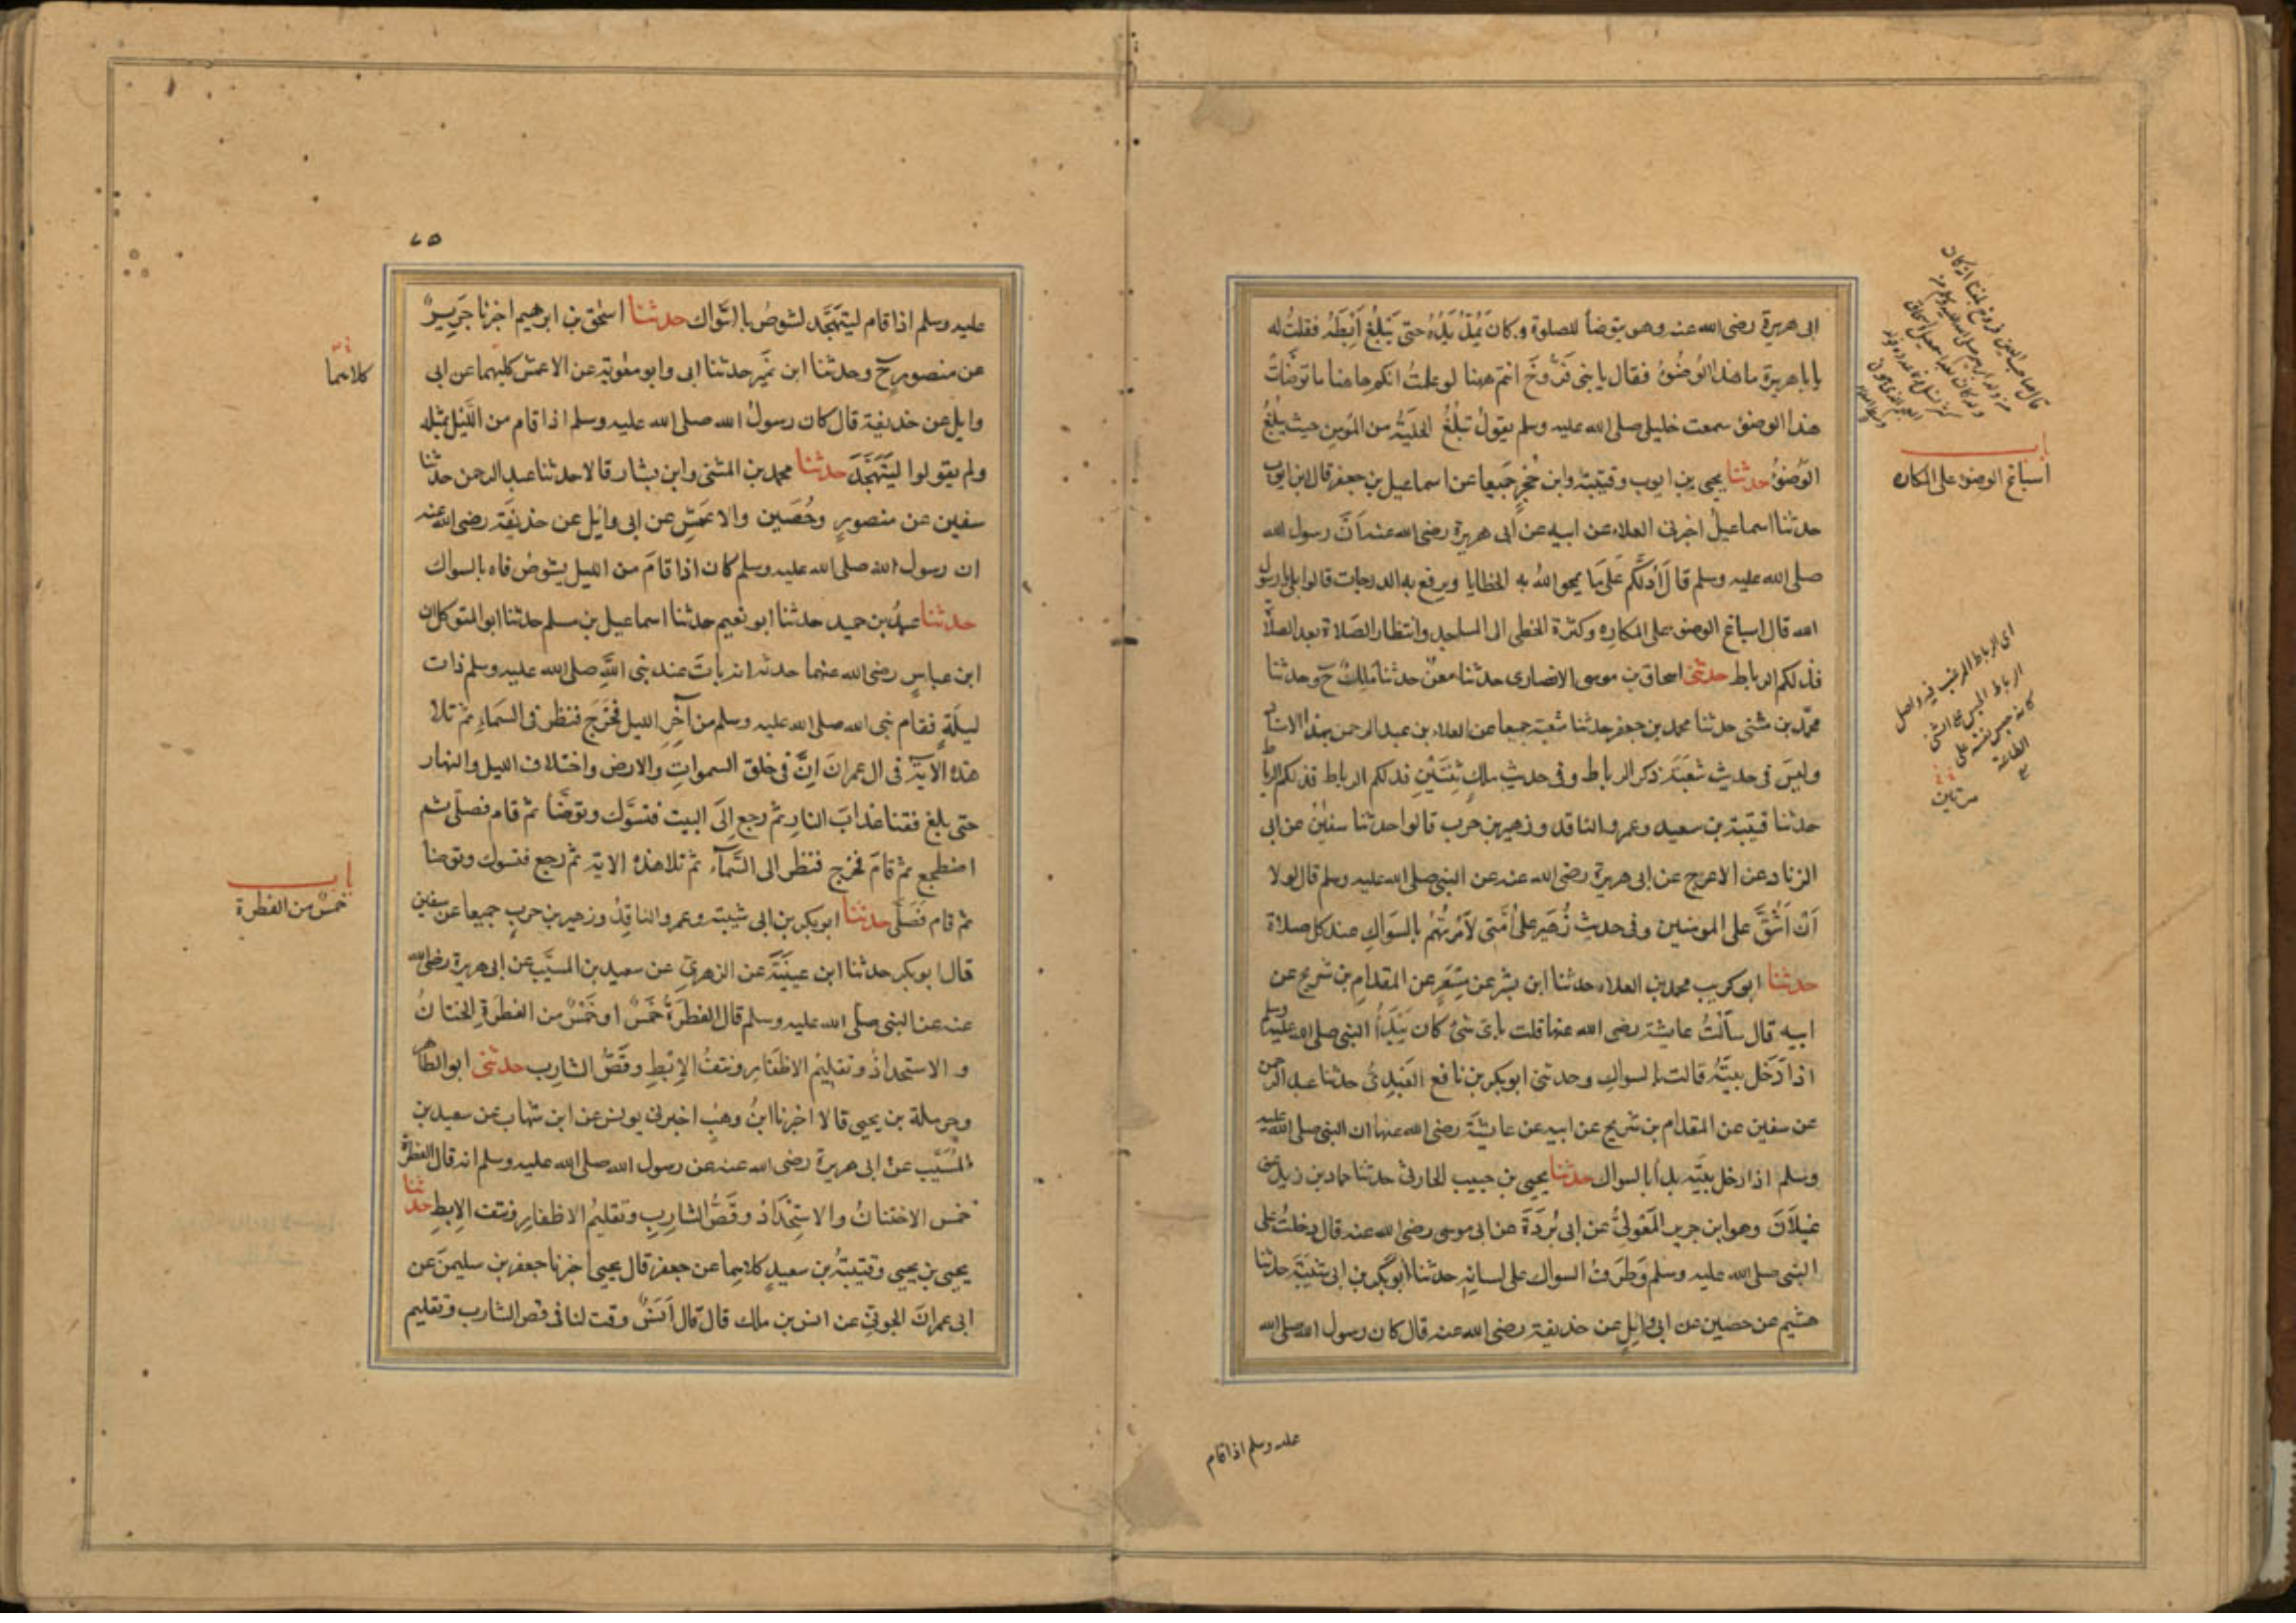 ابى هريرة رضى الله عنه وهو يتوضأ للصلوة وكان يَمُدُّ يَدَهُ حتى يَبْلُغَ اِبْطَهُ فقلتُ له
يا با هريرة ما هذا الوُضُوُ فقال يا بنى فَرُّوخَ انتم ههنا لو علمتُ انكم هاهنا ما توضّاتُ
هذا الوضؤ سمعت خليلى صلى الله عليه وسلم يقولُ تبلُغُ الحليَةُ من المؤمِنِ حيث يبلُغُ
الوُضوُ حدثنا يحيى بن ايوب وقتيبة وابن حُجْرٍ جَميعا عن اسماعيل بن جعفر قال ابن ايوب
حدثنا اسماعيلُ اخبرنى العلاء عن ابيه عن ابى هريرة رضى الله عنه اَنَّ رسول الله
صلى الله عليه وسلم قال اَلا اَدُلُّكُم عَلى مَا يمحوا اللهُ به الخطايا ويرفع به الدرجات قالوا بلى يا رسول
الله قال اسباغ الوضؤ على المكارِه وكثرة الخطى الى المساجد وانتظار الصّلاة بعد الصلاة
فذلكم الرباط حدثنى اسحاق بن موسى الانصارى حدثنا معنٌ حدثنا مَلِكٌ ح وحدثنا
محمّد بن مثنى حدثنا محمد بن جعفر حدثنا شعبة جميعا عن العلاء بن عبد الرحمن بهذا الاسناد
وليسَ فى حديث شعبَةَ ذكر الرباط وفى حديث ملكٍ ثِنتَيْنِ فذلكم الرباط فذلكم الرباط
حدثنا قتيبة بن سعيد وعمرو الناقد وزهير بن حرب قالوا حدثنا سفينُ عن ابى
الزناد عن الاعرج عن ابى هريرة رضى الله عنه عن النبى صلى الله عليه وسلم قال لولا
اَنْ اَشُقَّ على المومنين وفى حديث زُهَيرٍ على اُمّتى لاَمَرْتُهُمُ بالسّوَاكِ عند كل صلاة
حدثنا ابو كريب محمد بن العلاء حدثنا ابن بشر عن مِسْعَرٍ عن المقدامِ بن شريح عن
ابيه قال سألْتُ عايشة رضى الله عنها قلت باى شىْءٍ كان يَبْدَأُ النبى صلى الله عليه وسلم
اذا دَخَل بيتَهُ قالت بالسواكِ وحدثنى ابو بكر بن نافع العَبْدِىُّ حدثنا عبد الرحمن
عن سفين عن المقدام بن شريح عن ابيه عن عايشَةَ رضى الله عنها ان النبى صلى الله عليه
وسلم اذا دخل بيتَه بدأ بالسواك حدثنا يحيى بن حبيب الحارثى حدثنا حماد بن زيد عن
غيلاَنَ وهو ابن جرير المَعْوَلِىُّ عن ابى بُردَةَ عن ابى موسى رضى الله عنه قال دخلتُ على
النبى صلى الله عليه وسلم وَطرَفُ السواك على لسانِهِ حدثنا ابو بكر بن ابى شيبَةَ حدثنا
هشيم عن حصين عن ابى وائِلٍ عن حذيفة رضى الله عنه قال كان رسول الله صلى الله
باب
اسباغ الوضوء على المكاره
اى الرباط المرغب فيه واصل
الرباط الحبس على الشئ
كانه حبس نفسه على
الطاعة
مرتين
عليه وسلم اذا قام
٧٥
عليه وسلم اذا قام ليتهَجَّد يشوصُ بالسّواك حدثنا اسحٰق بن ابرهيم اخبرنا جَرِيرٌ
عن منصورٍ ح وحدثنا ابن نُمَيرٍ حدثنا ابى وابو معٰوية عن الاعمش كليهما عن ابى
وايل عن حذيفة قال كان رسولُ الله صلى الله عليه وسلم اذا قام من اللّيل بمثله
ولم يقولوا ليَتَهَجَّدَ حدثنا محمد بن المثنى وابن بشار قالا حدثنا عبد الرحمن حدثنا
سفين عن منصورٍ وحُصَين والاعمَشِ عن ابى وائِل عن حذيفَة رضى الله عنه
ان رسول الله صلى الله عليه وسلم كان اذا قامَ من الليل يشوصُ فاه بالسواك
حدثنا عبدُ بن حميد حدثنا ابو نعيم حدثنا اسماعيل بن مسلم حدثنا ابو المتوكل ان
ابن عباسٍ رضى الله عنهما حدثه انه باتَ عند نبى اللهِ صلى الله عليه وسلم ذات
ليلَةٍ فقام نبى الله صلى الله عليه وسلم من آخِرِ الليل فخَرَجَ فنظر فى السّمَاءِ ثمّ تلا
هذه الآيَةَ فى ال عمرانَ اِنَّ فى خلق السموات والارض واختلاف الليل والنهار
حتى بلغ فقنا عذابَ النارِ ثمّ رجع الى البيت فتسَّوك وتوضَّأ ثمّ قام فصلّى ثم
اضطجع ثمّ قامَ فخرج فنظر الى السَّمآء ثمّ تلا هذه الاية ثمّ رجع فتسوك وتوضا
ثمّ قام فَصَلّى حدثنا ابو بكر بن ابى شيبة وعمرو الناقِدُ وزهير بن حربٍ جميعا عن سفين
قال ابو بكر حدثنا ابن عيينَةَ عن الزهرىِّ عن سعيد بن المسيَّب عن ابى هريرة رضى الله
عنه عن النبى صلى الله عليه وسلم قال الفطرَةُ خَمْسٌ او خَمْسٌ من الفطرَةِ الختانُ
والاستحدادُ وتقليمُ الاظفَارِ ونتفُ الاِبْطِ وقَصُّ الشارِب حدثنى ابو الطاهر
وحرملة بن يحيى قالا اخبرنا ابنُ وهبٍ اخبرنى يونس عن ابن شهاب عن سعيد بن
المُسَيَّب عن ابى هريرة رضى الله عنه عن رسول الله صلى الله عليه وسلم انه قال الفطرة
خمس الاختتانُ والاستِحْدَادُ وقَصُّ الشارِبِ وتقليمُ الاظفارِ ونتف الاِبطِ حدثنا
يحيى بن يحيى وقتيبَةُ بن سعيدٍ كلاهما عن جعفر قال يحيى اخبرنا جعفر بن سليمٰنَ عن
ابى عمرانَ الجونِىِّ عن انس بن ملك قال قال اَنَسٌ وقت لنا فى قص الشارب وتقليم
كلاهما
باب
خمس من الفطرة